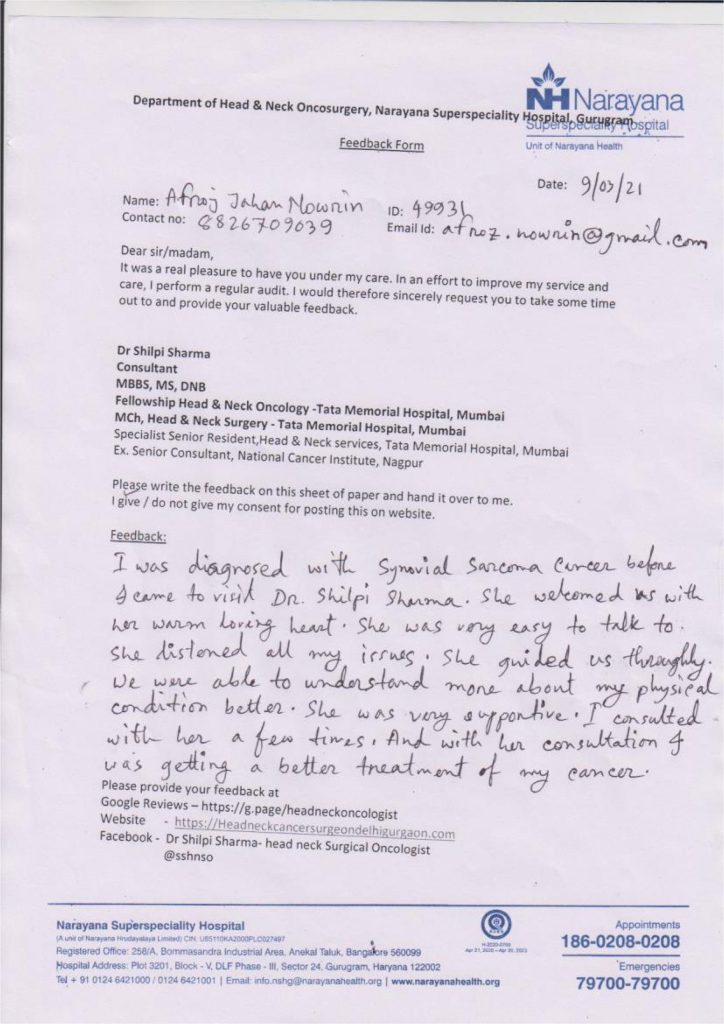 NH Narayana
Superspeciality Hospital
Unit of Narayana Health
Department of Head & Neck Oncosurgery, Narayana Superspeciality Hospital, Gurugram
Feedback Form
Date: 9/03/21
Name: Afroj Jahan Nowrin ID: 49931
Contact no: 8826709039 Email Id: afroz.nowrin@gmail.com
Dear sir/madam,
It was a real pleasure to have you under my care. In an effort to improve my service and
care, I perform a regular audit. I would therefore sincerely request you to take some time
out to and provide your valuable feedback.
Dr Shilpi Sharma
Consultant
MBBS, MS, DNB
Fellowship Head & Neck Oncology -Tata Memorial Hospital, Mumbai
MCh, Head & Neck Surgery - Tata Memorial Hospital, Mumbai
Specialist Senior Resident,Head & Neck services, Tata Memorial Hospital, Mumbai
Ex. Senior Consultant, National Cancer Institute, Nagpur
Please write the feedback on this sheet of paper and hand it over to me.
I give / do not give my consent for posting this on website.
Feedback:
I was diagnosed with Synovial Sarcoma Cancer before
I came to visit Dr. Shilpi Sharma. She welcomed us with
her warm loving heart. She was very easy to talk to.
She listened all my issues. She guided us throughly.
We were able to understand more about my physical
condition better. She was very supportive. I consulted
with her a few times. And with her consultation I
was getting a better treatment of my cancer.
Please provide your feedback at
Google Reviews – https://g.page/headneckoncologist
Website - https://Headneckcancersurgeondelhigurgaon.com
Facebook - Dr Shilpi Sharma- head neck Surgical Oncologist
@sshnso
Narayana Superspeciality Hospital
(A unit of Narayana Hrudayalaya Limited) CIN: U85110KA2000PLC027497
Registered Office: 258/A, Bommasandra Industrial Area, Anekal Taluk, Bangalore 560099
Hospital Address: Plot 3201, Block - V, DLF Phase - III, Sector 24, Gurugram, Haryana 122002
Tel + 91 0124 6421000 / 0124 6421001 | Email: info.nshg@narayanahealth.org | www.narayanahealth.org
H-2020-0769
Apr 21, 2020 – Apr 20, 2023
Appointments
186-0208-0208
Emergencies
79700-79700